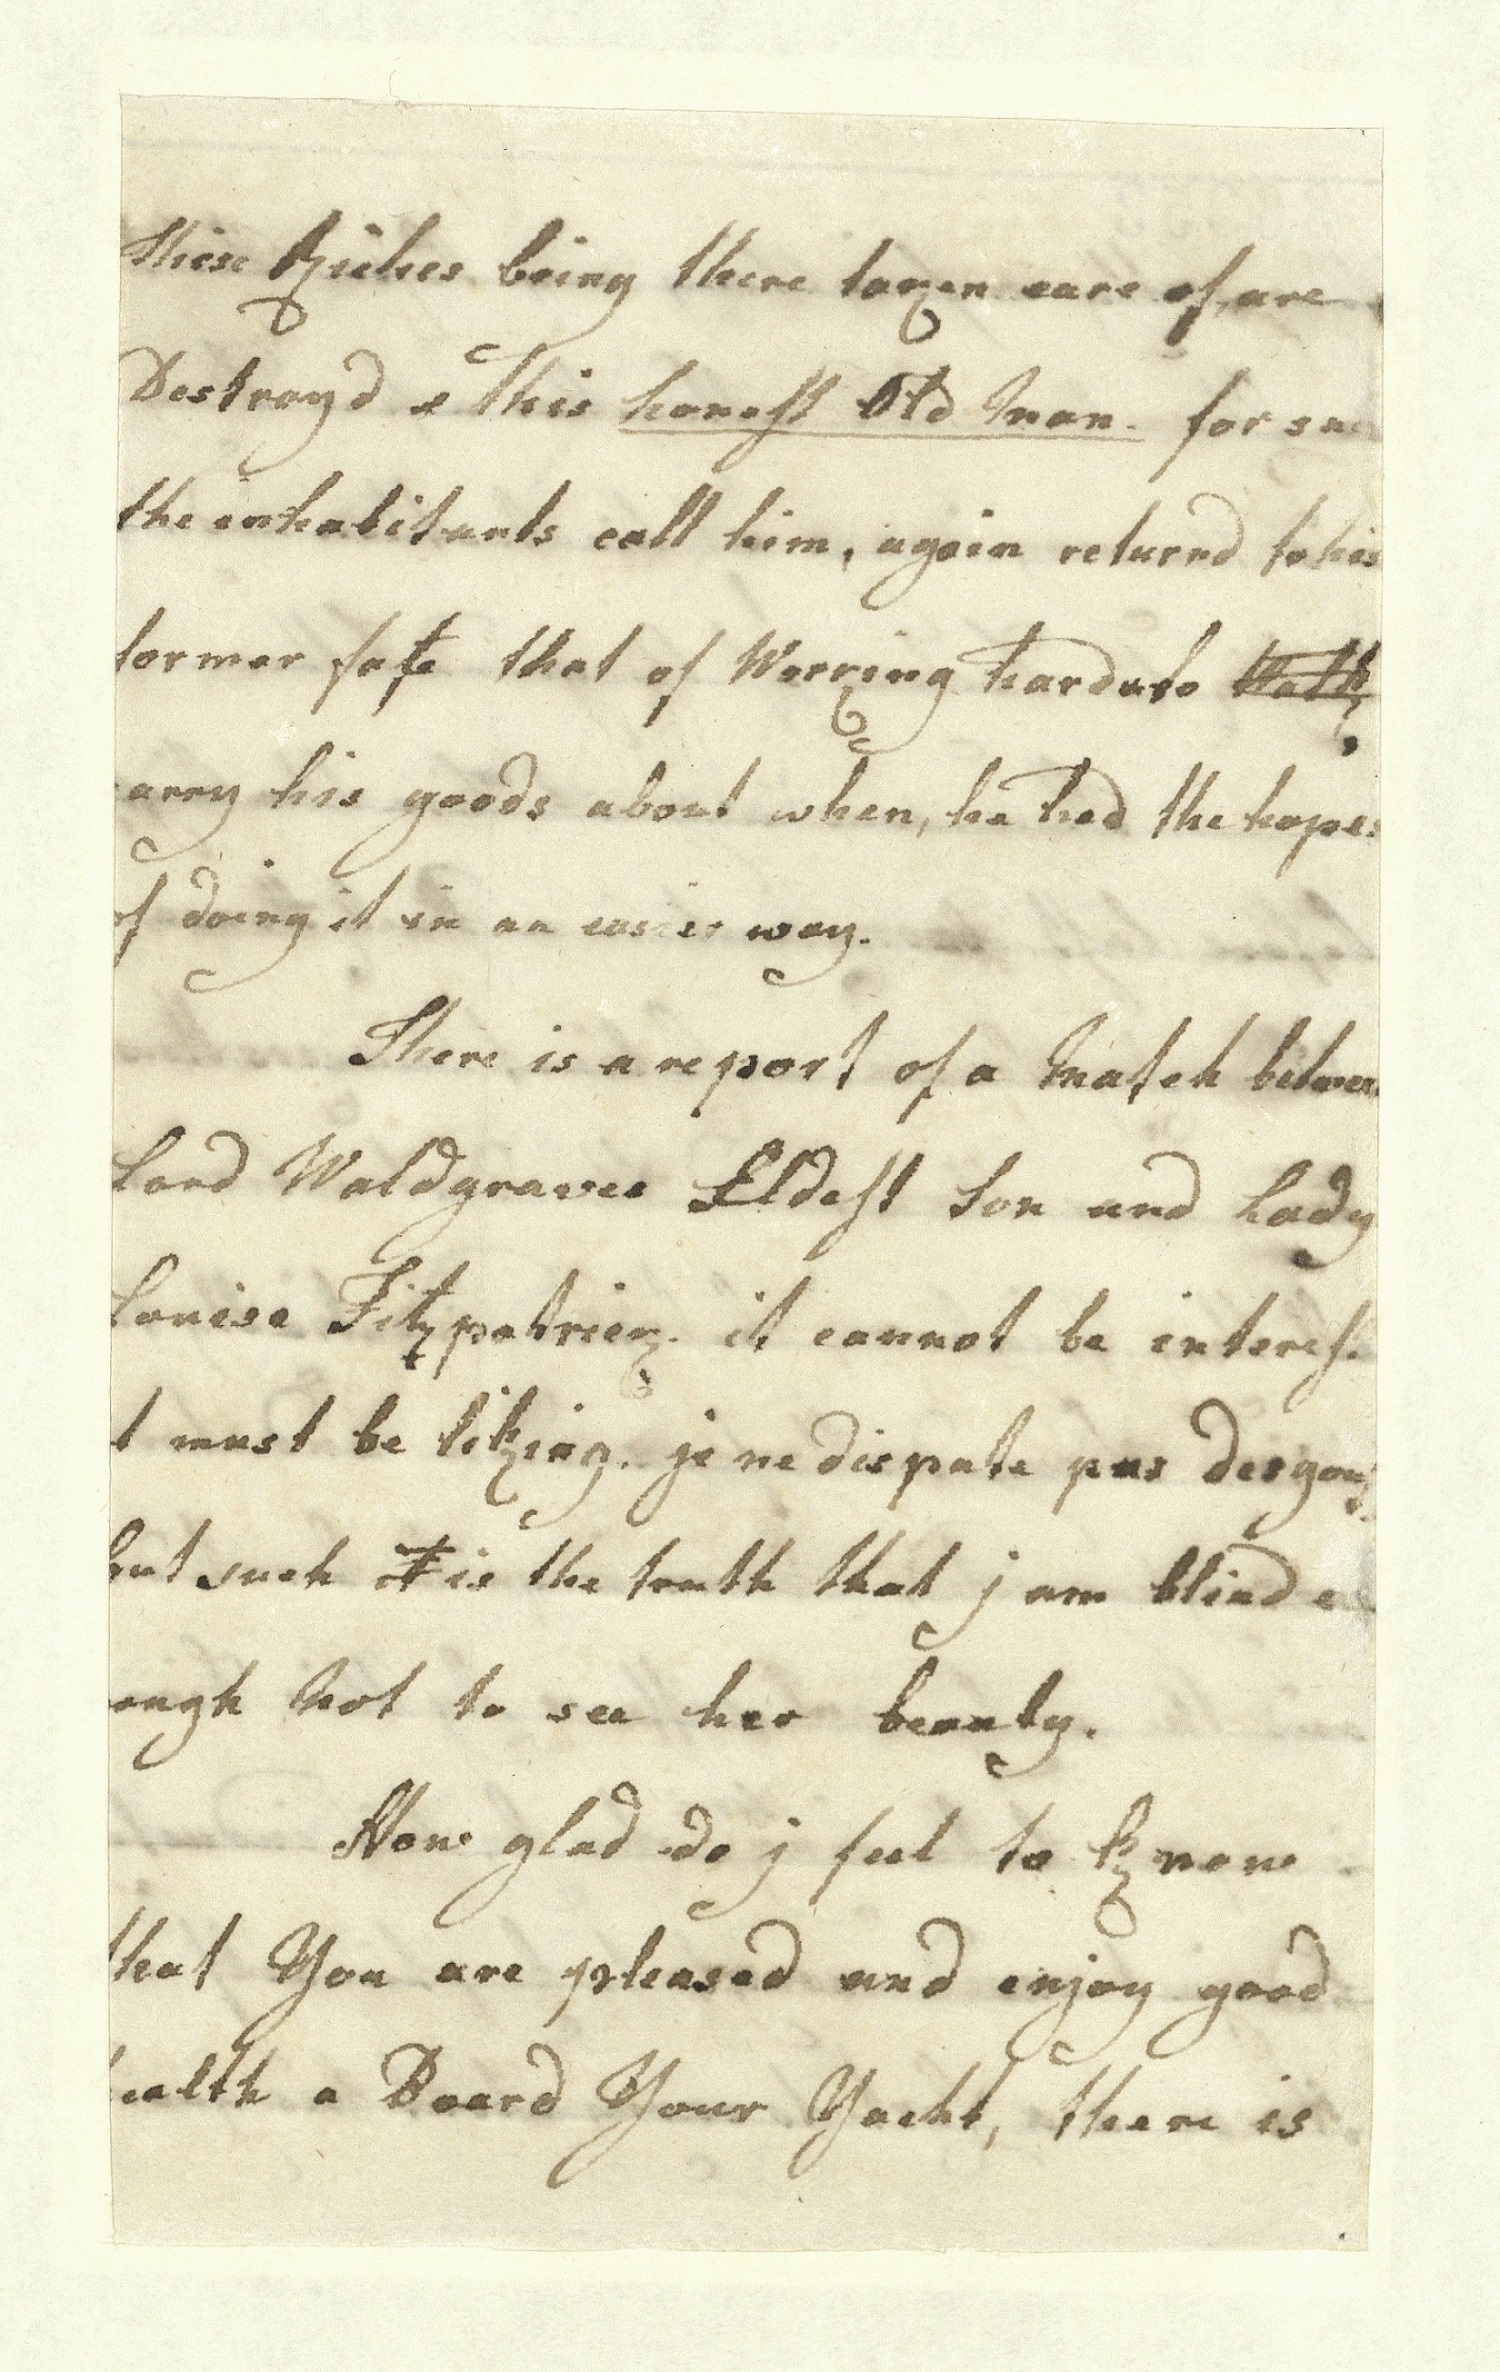 these Kiches being there taken care of, are
Destroyd & this honest Old Man. for su
the enhabitants call him, again returnd to his
former fate that of Worcking hard & to Walk
arry his goods about when, he had the hopes
of doing it in an easier way.
There is a report of a Match between
Lord Waldgraves Eldest Son and Lady
Louisa Fitzpatrick. it cannot be interest.
t must be liking. je ne dispute pas des gouts
but such it is the truth that j am blind e
ough Not to see her beauty.
How glad do j feel to Know
that You are pleased and enjoy good
health a Board Your Yacht, there is